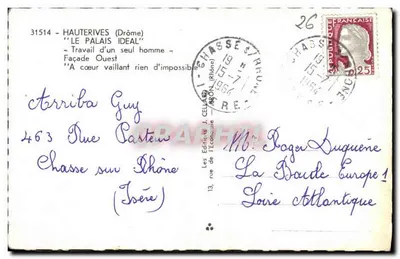 31514 - HAUTERIVES (Drôme)
"LE PALAIS IDEAL"
- Travail d'un seul homme -
Façade Ouest
"A cœur vaillant rien d'impossible"
26
REPUBLIQUE FRANCAISE
25F
CHASSE S/ RHONE
19 H
15-7
R.E.
RHONE
15-7
Les Editions J. CELLARD
13, rue de l'Economie
BRON (Rhône)
Arriba Guy
463 Rue Pasteur
Chasse sur Rhône
(Isère)
M. Roger Duguène
La Baule Europe 1
Loire Atlantique